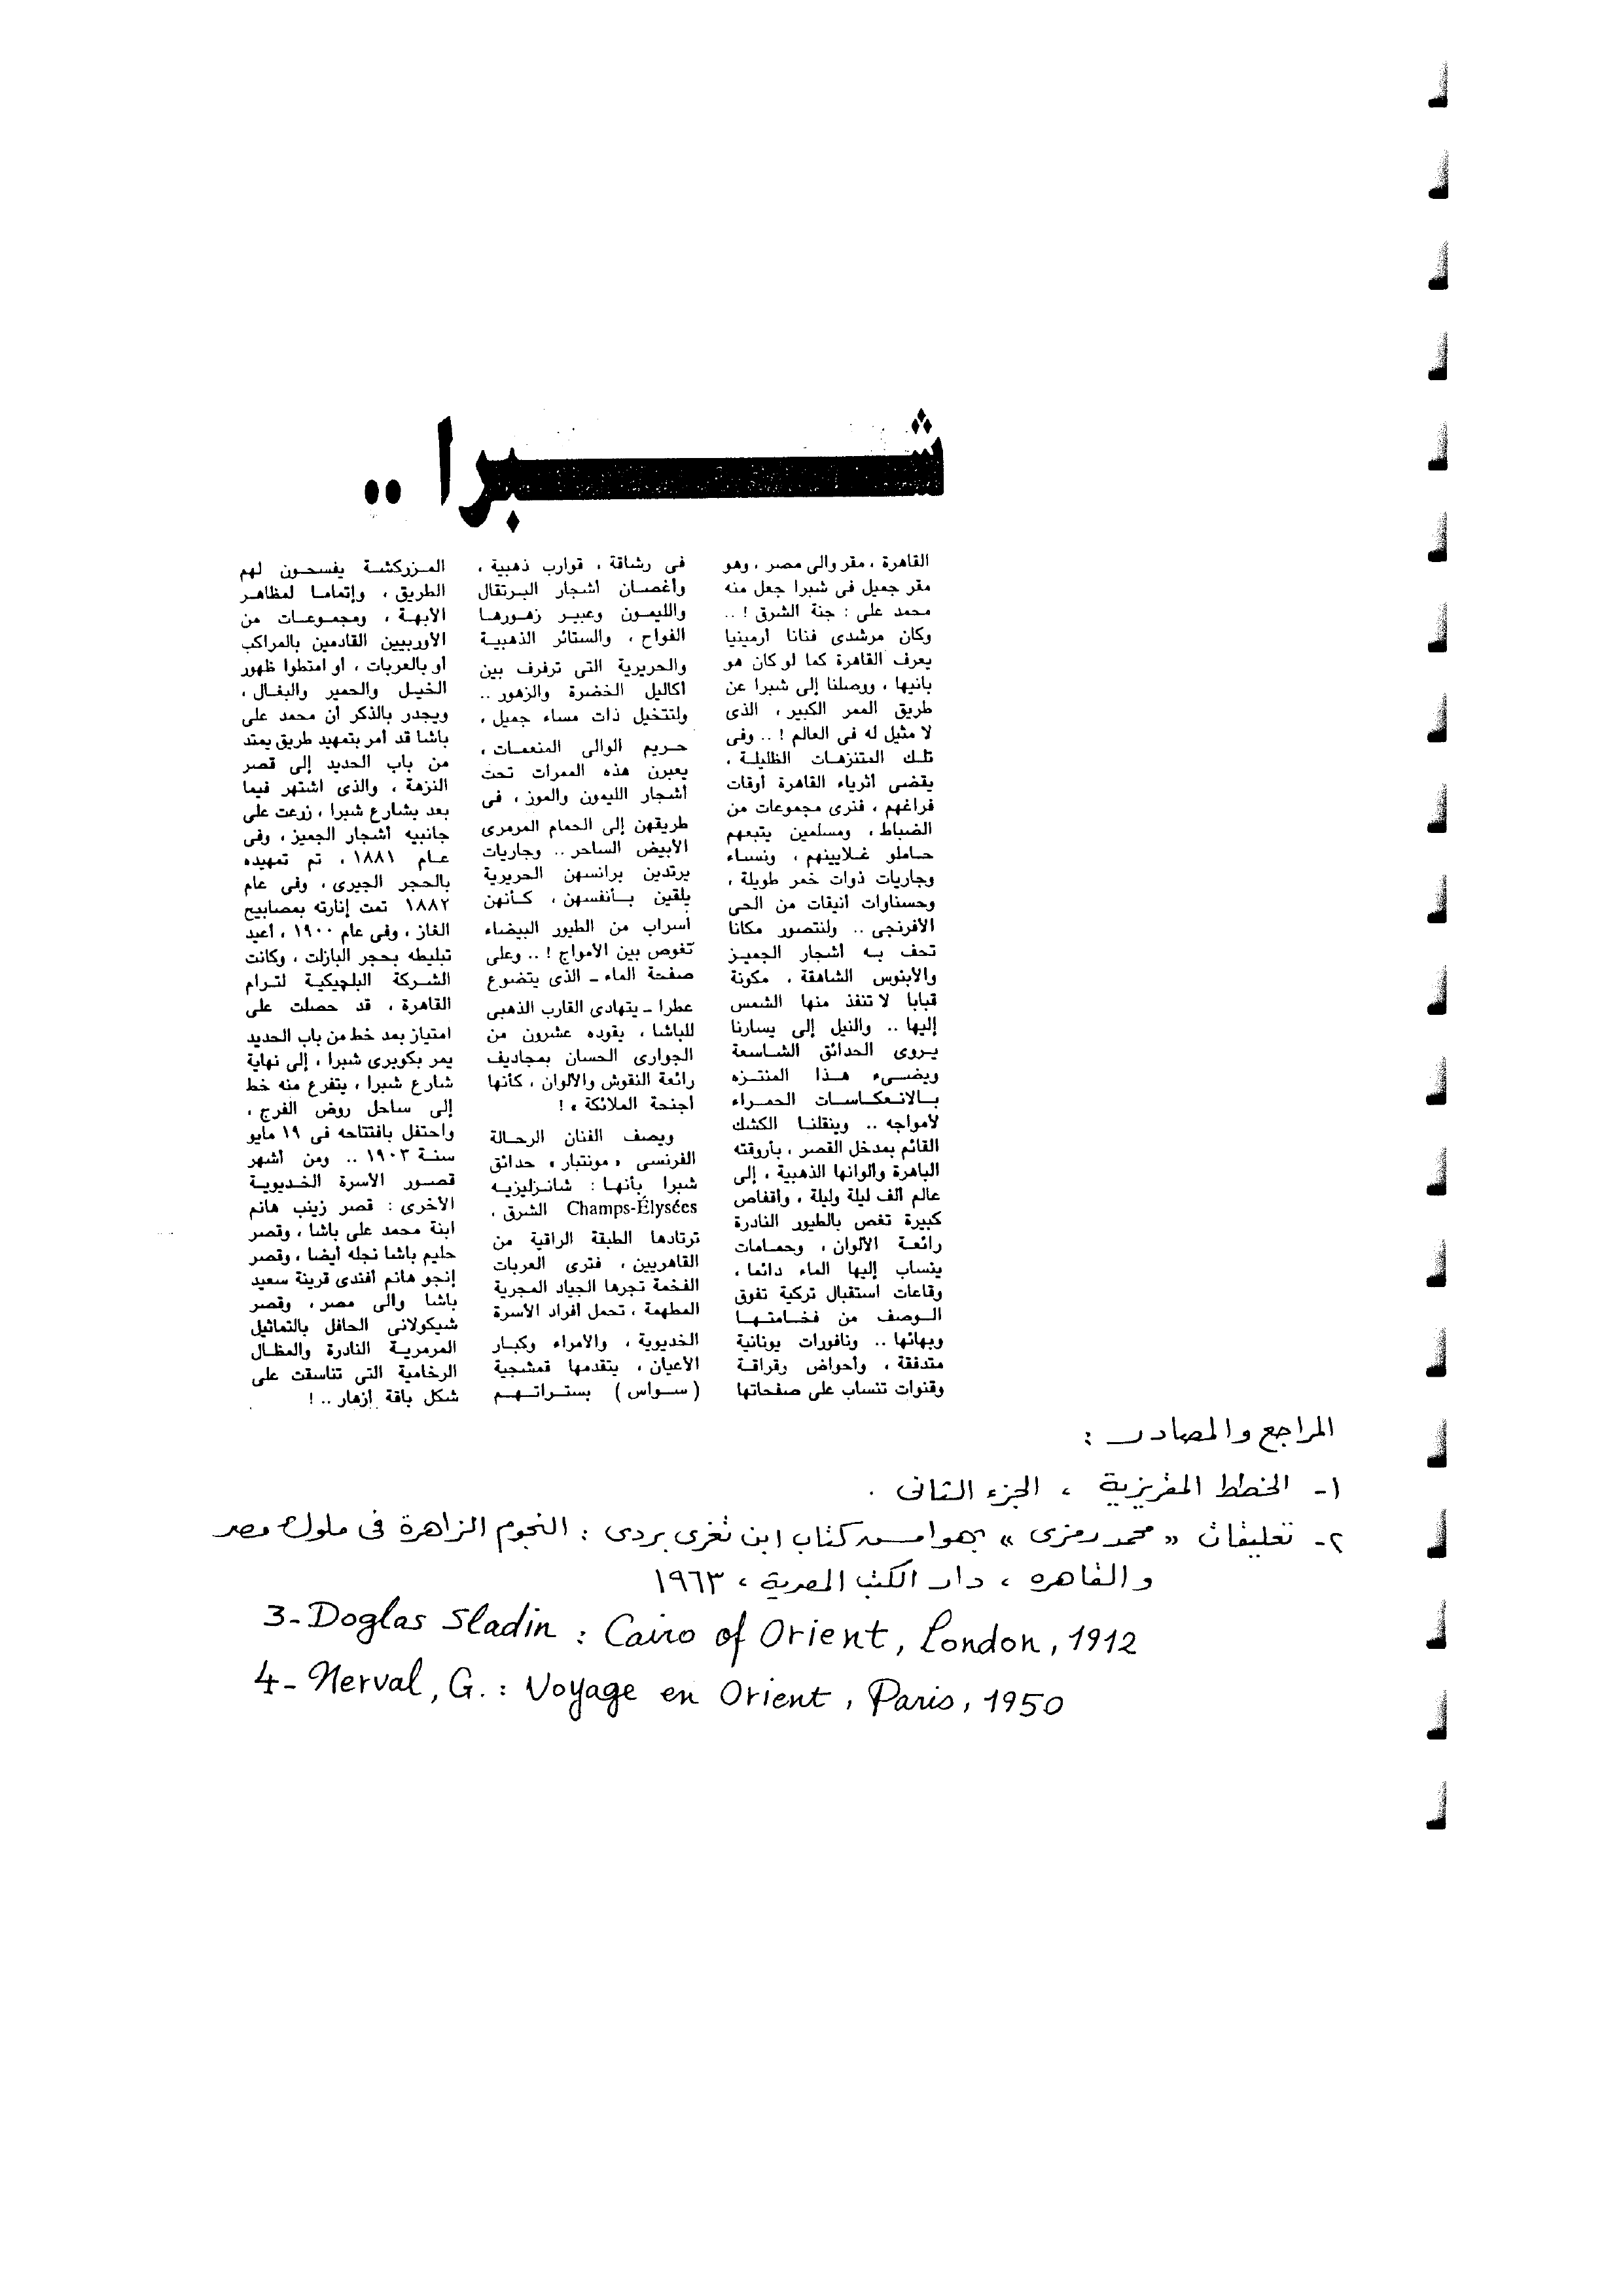 شبرا ..
القاهرة ، مقر والى مصر ، وهو
مقر جميل فى شبرا جعل منه
محمد على : جنة الشرق ! ..
وكان مرشدى فنانا أرمينيا
يعرف القاهرة كما لو كان هو
بانيها ، ووصلنا إلى شبرا عن
طريق الممر الكبير ، الذى
لا مثيل له فى العالم ! .. وفى
تلك المتنزهات الظليلة ،
يقضى أثرياء القاهرة أوقات
فراغهم ، فنرى مجموعات من
الضباط ، ومسلمين يتبعهم
حاملو غلايينهم ، ونساء
وجاريات ذوات خمر طويلة ،
وحسناوات أنيقات من الحى
الأفرنجى .. ولنتصور مكانا
تحف به أشجار الجميز
والأبنوس الشاهقة ، مكونة
قبابا لا تنفذ منها الشمس
إليها .. والنيل إلى يسارنا
يروى الحدائق الشاسعة
ويضىء هذا المنتزه
بالانعكاسات الحمراء
لأمواجه .. وينقلنا الكشك
القائم بمدخل القصر ، بأروقته
الباهرة وألوانها الذهبية ، إلى
عالم ألف ليلة وليلة ، وأقفاص
كبيرة تغص بالطيور النادرة
رائعة الألوان ، وحمامات
ينساب إليها الماء دائما ،
وقاعات استقبال تركية تفوق
الوصف من فخامتها
وبهائها .. ونافورات يونانية
متدفقة ، وأحواض رقراقة
وقنوات تنساب على صفحاتها
فى رشاقة ، قوارب ذهبية ،
وأغصان أشجار البرتقال
والليمون وعبير زهورها
الفواح ، والستائر الذهبية
والحريرية التى ترفرف بين
أكاليل الخضرة والزهور ..
ولنتخيل ذات مساء جميل ،
حريم الوالى المنعمات ،
يعبرن هذه الممرات تحت
أشجار الليمون والموز ، فى
طريقهن إلى الحمام المرمرى
الأبيض الساحر .. وجاريات
يرتدين برانسهن الحريرية
يلقين بأنفسهن ، كأنهن
أسراب من الطيور البيضاء
تغوص بين الأمواج ! .. وعلى
صفحة الماء ـ الذى يتضوع
عطرا ـ يتهادى القارب الذهبى
للباشا ، يقوده عشرون من
الجوارى الحسان بمجاديف
رائعة النقوش والألوان ، كأنها
أجنحة الملائكة » !
ويصف الفنان الرحالة
الفرنسى « مونتبار » حدائق
شبرا بأنها : شانزليزيه
Champs-Élysées الشرق ،
ترتادها الطبقة الراقية من
القاهريين ، فترى العربات
الفخمة تجرها الجياد المجرية
المطهمة ، تحمل أفراد الأسرة
الخديوية ، والأمراء وكبار
الأعيان ، يتقدمها قمشجية
( سواس ) بستراتهم
المزركشة يفسحون لهم
الطريق ، وإتماما لمظاهر
الأبهة ، ومجموعات من
الأوربيين القادمين بالمراكب
أو بالعربات ، أو امتطوا ظهور
الخيل والحمير والبغال ،
ويجدر بالذكر أن محمد على
باشا قد أمر بتمهيد طريق يمتد
من باب الحديد إلى قصر
النزهة ، والذى اشتهر فيما
بعد بشارع شبرا ، زرعت على
جانبيه أشجار الجميز ، وفى
عام ١٨٨١ ، تم تمهيده
بالحجر الجيرى ، وفى عام
١٨٨٢ تمت إنارته بمصابيح
الغاز ، وفى عام ١٩٠٠ ، أعيد
تبليطه بحجر البازلت ، وكانت
الشركة البلجيكية لترام
القاهرة ، قد حصلت على
امتياز بمد خط من باب الحديد
يمر بكوبرى شبرا ، إلى نهاية
شارع شبرا ، يتفرع منه خط
إلى ساحل روض الفرج ،
واحتفل بافتتاحه فى ١٩ مايو
سنة ١٩٠٣ .. ومن أشهر
قصور الأسرة الخديوية
الأخرى : قصر زينب هانم
ابنة محمد على باشا ، وقصر
حليم باشا نجله أيضا ، وقصر
إنجو هانم أفندى قرينة سعيد
باشا والى مصر ، وقصر
شيكولانى الحافل بالتماثيل
المرمرية النادرة والمظال
الرخامية التى تناسقت على
شكل باقة أزهار .. !
المراجع والمصادر :
١- الخطط المقريزية ، الجزء الثانى .
٢- تعليقات « محمد رمزى » بهوامش كتاب ابن تغرى بردى : النجوم الزاهرة فى ملوك مصر
والقاهره ، دار الكتب المصرية ، ١٩٦٣
3- Doglas Sladin : Cairo of Orient, London, 1912
4- Nerval, G. : Voyage en Orient, Paris, 1950